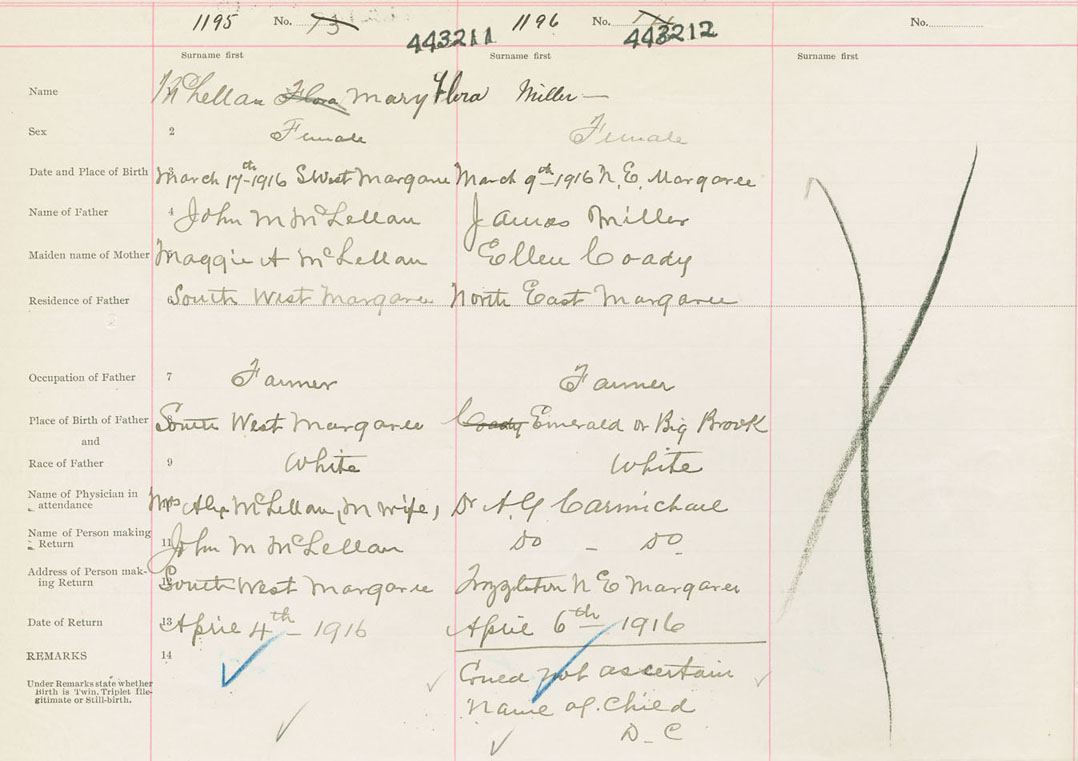 1195 No. 73 1196 No. No.
443211 443212
Surname first Surname first Surname first
Name McLellan Flora Mary Flora Miller —
Sex 2 Female Female
Date and Place of Birth 3 March 17th-1916 S West Margaree March 9th-1916 N. E. Margaree
Name of Father 4 John M McLellan James Miller
Maiden name of Mother Maggie A McLellan Ellen Coady
Residence of Father South West Margaree North East Margaree
Occupation of Father 7 Farmer Farmer
Place of Birth of Father 8 South West Margaree Coady Emerald or Big Brook
and
Race of Father 9 White White
Name of Physician in
attendance Mrs Alex McLellan, M wife, Dr A. G Carmichael
Name of Person making
Return 11 John M McLellan Do — Do
Address of Person mak-
ing Return 12 South West Margaree N E Margaree
Date of Return 13 April 4th — 1916 April 6th — 1916
REMARKS 14
Under Remarks state whether
Birth is Twin, Triplet Ille-
gitimate or Still-birth.
Coued not ascertain
Name of Chied
D-C